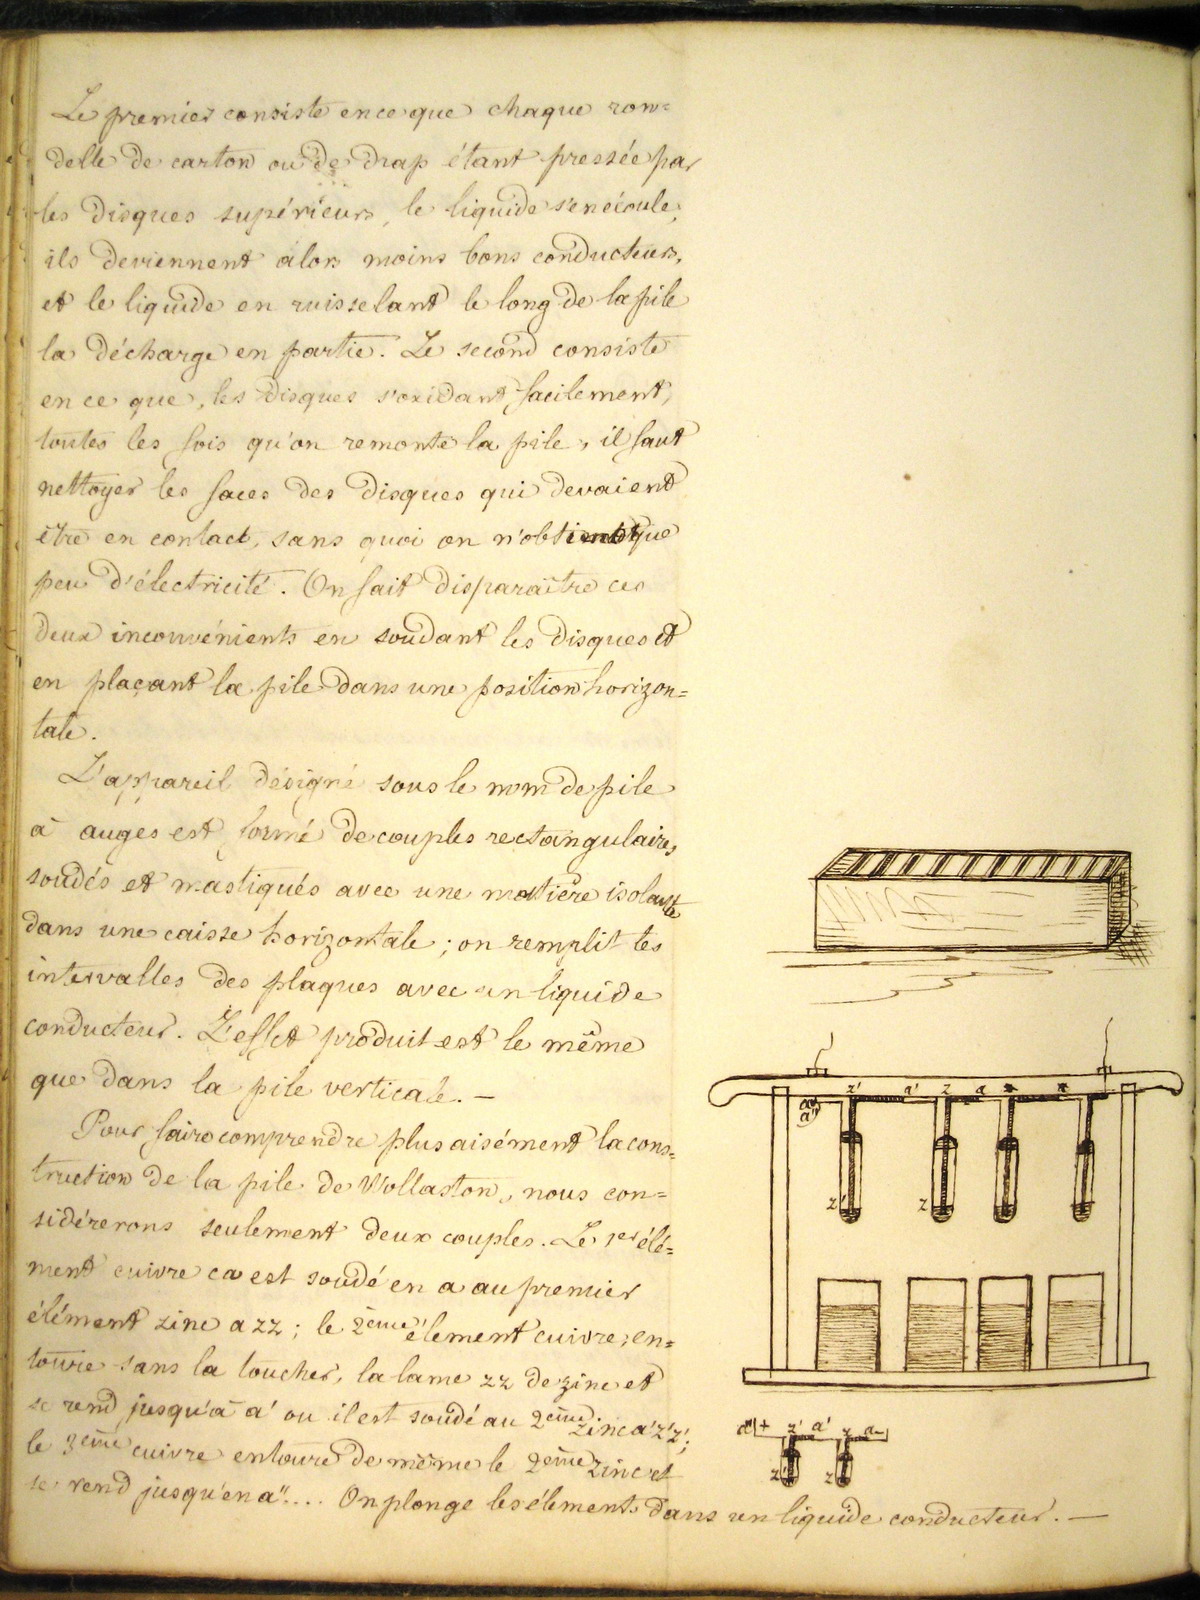 Le premier consiste en ce que chaque ron=
delle de carton ou de drap étant pressée par
les disques supérieurs, le liquide s'en écoule;
ils deviennent alors moins bons conducteurs,
et le liquide en ruisselant le long de la pile
la décharge en partie. Le second consiste
en ce que, les disques s'oxidant facilement,
toutes les fois qu'on remonte la pile, il faut
nettoyer les faces des disques qui devaient
être en contact, sans quoi on n'obtient que
peu d'électricité. On fait disparaître ces
deux inconvénients en soudant les disques et
en plaçant la pile dans une position horizon=
tale.
L'appareil désigné sous le nom de pile
à auges est formé de couples rectangulaires,
soudés et mastiqués avec une matière isolante
dans une caisse horizontale; on remplit les
intervalles des plaques avec un liquide
conducteur. L'effet produit est le même
que dans la pile verticale. —
Pour faire comprendre plus aisément la cons=
truction de la pile de Wollaston, nous con=
sidérerons seulement deux couples. Le 1er élé=
ment cuivre ca est soudé en a au premier
élément zinc azz; le 2ème élement cuivre, en=
toure sans la toucher, la lame zz de zinc et
se rend jusqu'à a' ou il est soudé au 2ème zinc a'z'z';
le 3ème cuivre entoure de même le 2ème zinc et
se rend jusqu'en a".... On plonge les élements dans un liquide conducteur. —
z' a' z a
a"
z' z
a" + z' a' z a -
z' z